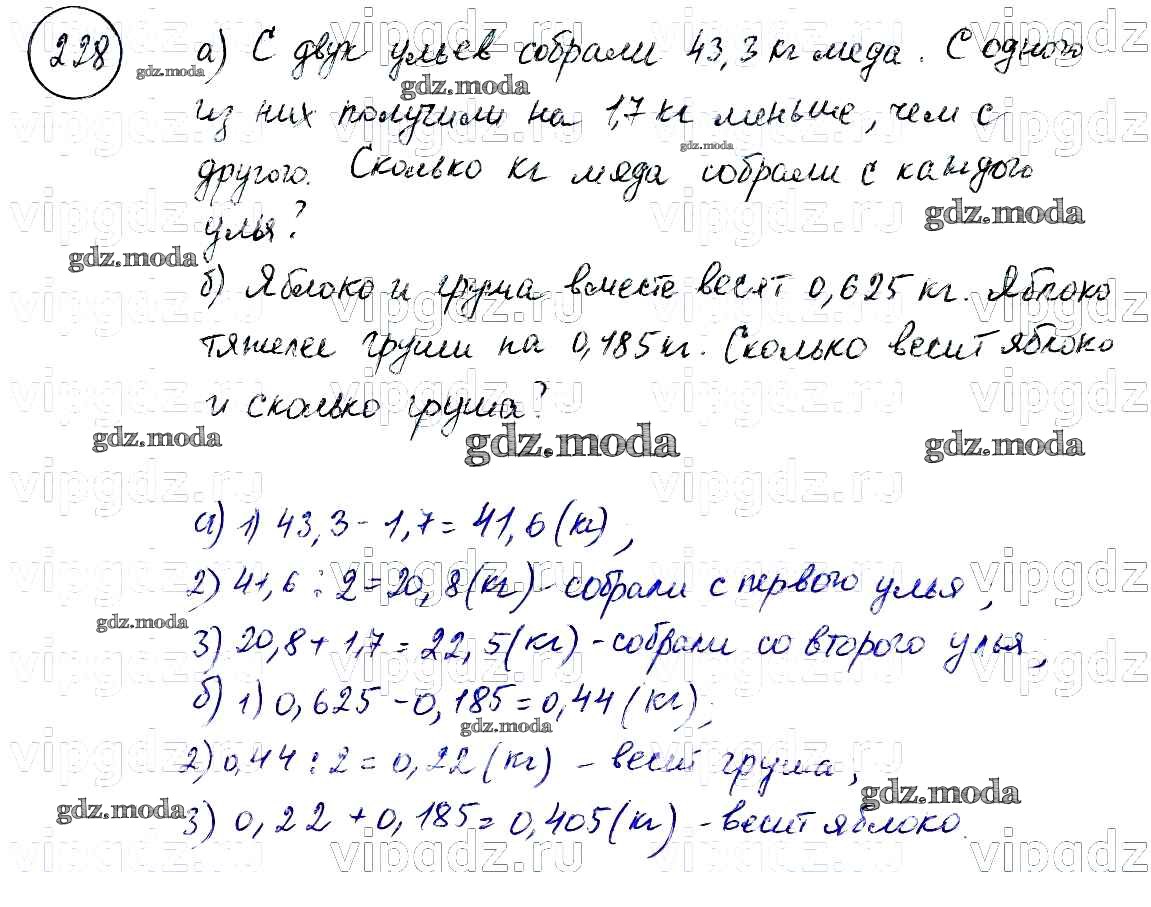 228 а) С двух ульев собрали 43,3 кг меда. С одного
из них получили на 1,7 кг меньше, чем с
другого. Сколько кг меда собрали с каждого
улья?
б) Яблоко и груша вместе весят 0,625 кг. Яблоко
тяжелее груши на 0,185 кг. Сколько весит яблоко
и сколько груша?
а) 1) 43,3 - 1,7 = 41,6 (кг),
2) 41,6 : 2 = 20,8 (кг) - собрали с первого улья,
3) 20,8 + 1,7 = 22,5 (кг) - собрали со второго улья,
б) 1) 0,625 - 0,185 = 0,44 (кг),
2) 0,44 : 2 = 0,22 (кг) - весит груша,
3) 0,22 + 0,185 = 0,405 (кг) - весит яблоко.
gdz.moda
vipgdz.ru